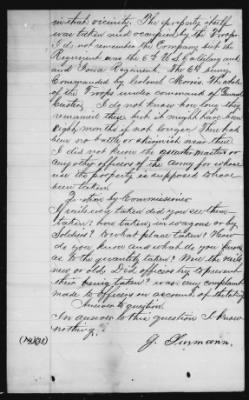 in that vicinity. The property itself
was taken and occupied by the Troops
I do not remember the Company but the
Regiment was the 6th U.S. Calvary and
and Iowa Regiment. The 6th Cavy.
Commanded by Colonel Morris. The whole
of the Troops under command of General
Custer. I do not know how long they
remained there but it might have been
eight months if not longer. There had
been no battle or skirmish near there
I did not know the quarter master or
any other officers of the Army for whose
use the property is supposed to have
been taken
Question by Commissioner
If rails being taken did you see them
taken? how taken in wagons or by
Soldiers? to what place taken? How
do you know and what do you know
as to the quantity taken? Were the rails
new or old? Did officers by represent
their being taken? was any complaint
made to officers on account of the taking
Answer to question
In answer to this question I know
nothing.
J. Surmann.